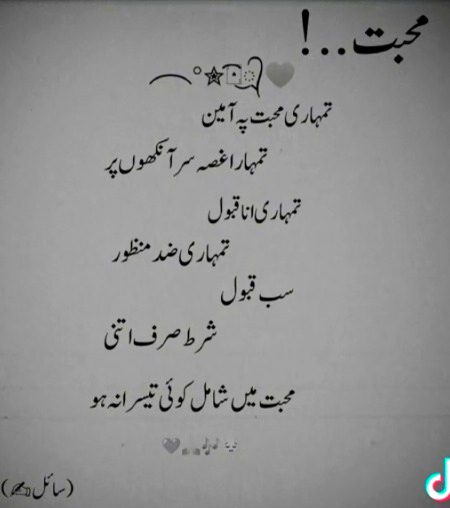 محبت...!
تمہاری محبت پہ آمین
تمہارا غصہ سر آنکھوں پر
تمہاری انا قبول
تمہاری ضد منظور
سب قبول
شرط صرف اتنی
محبت میں شامل کوئی تیسرا نہ ہو
(سائل✍)